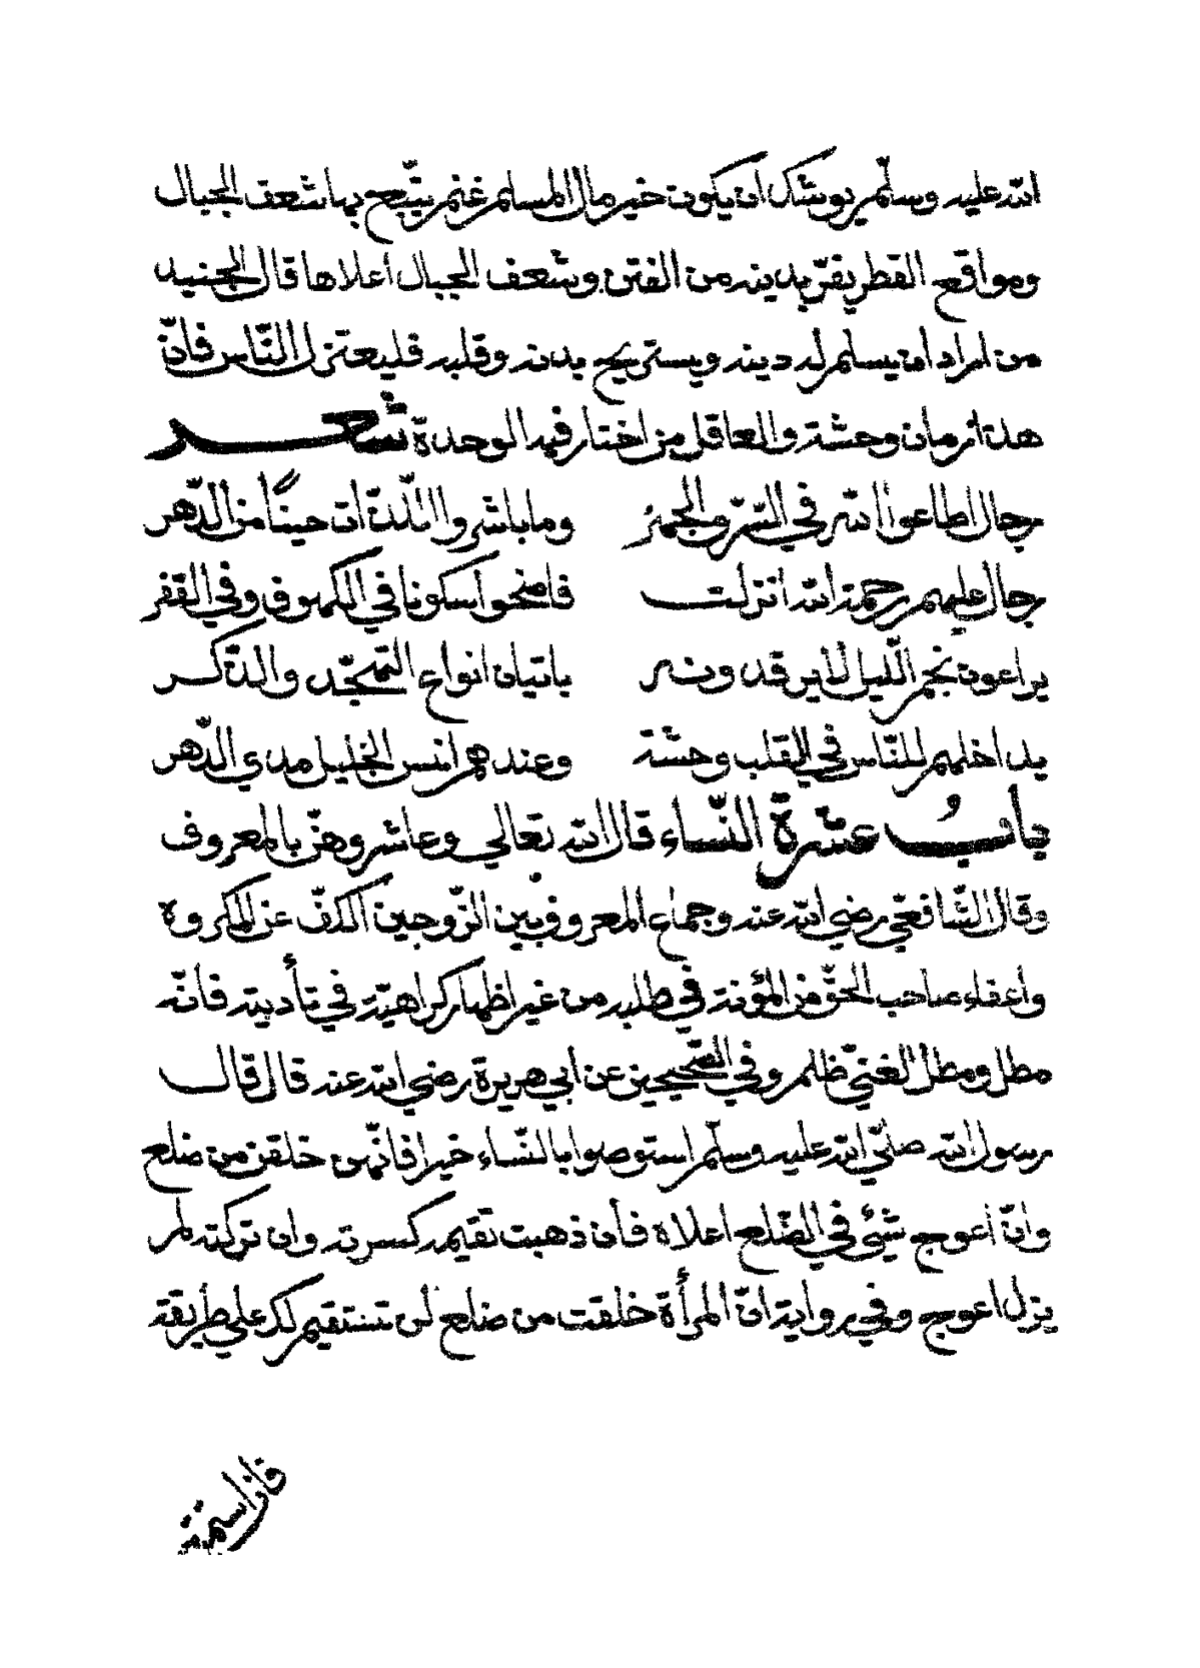 الله عليه وسلّم يوشك ان يكون خير مال المسلم غنم يتّبع بها شعف الجبال
ومواقع القطر يفرّ بدينه من الفتن وشعف الجبال أعلاها قال الجنيد
من اراد ان يسلم له دينه ويستريح بدنه وقلبه فليعتزل النّاس فانّ
هذا زمان وحشة والعاقل من اختار فيه الوحدة شعر
رجال اطاعوا الله في السّرّ والجهر وما باشروا اللّذّات حينًا من الدّهر
رجال عليهم رحمة الله انزلت فاضحوا سكونا في الكهوف وفي القفر
يراعون نجم اللّيل لا يرقدونه باتيان انواع التهجّد والذّكر
يداخلهم للنّاس في القلب وحشة وعندهم انس الخليل مدي الدّهر
بابُ عشرة النّساء قال الله تعالي وعاشروهنّ بالمعروف
وقال الشّافعّي رضي الله عنه وجماع المعروف بين الزّوجين الكفّ عن المكروه
وأعفاء صاحب الحقّ من المؤنة في طلبه من غير اظهار كراهيّة في تأديته فانّه
مطل ومطل الغنيّ ظلم وفي الصّحيحين عن أبي هريرة رضي الله عنه قال قال
رسول الله صلّي الله عليه وسلّم استوصوا بالنّساء خيرا فانّهن خلقن من ضلع
وانّ أعوج شيئ في الضّلع اعلاه فأن ذهبت تقيمه كسرته وان تركته لم
يزل اعوج وفي رواية انّ المرأة خلقت من ضلع لن تستقيم لك علي طريقة
فان استمتعت